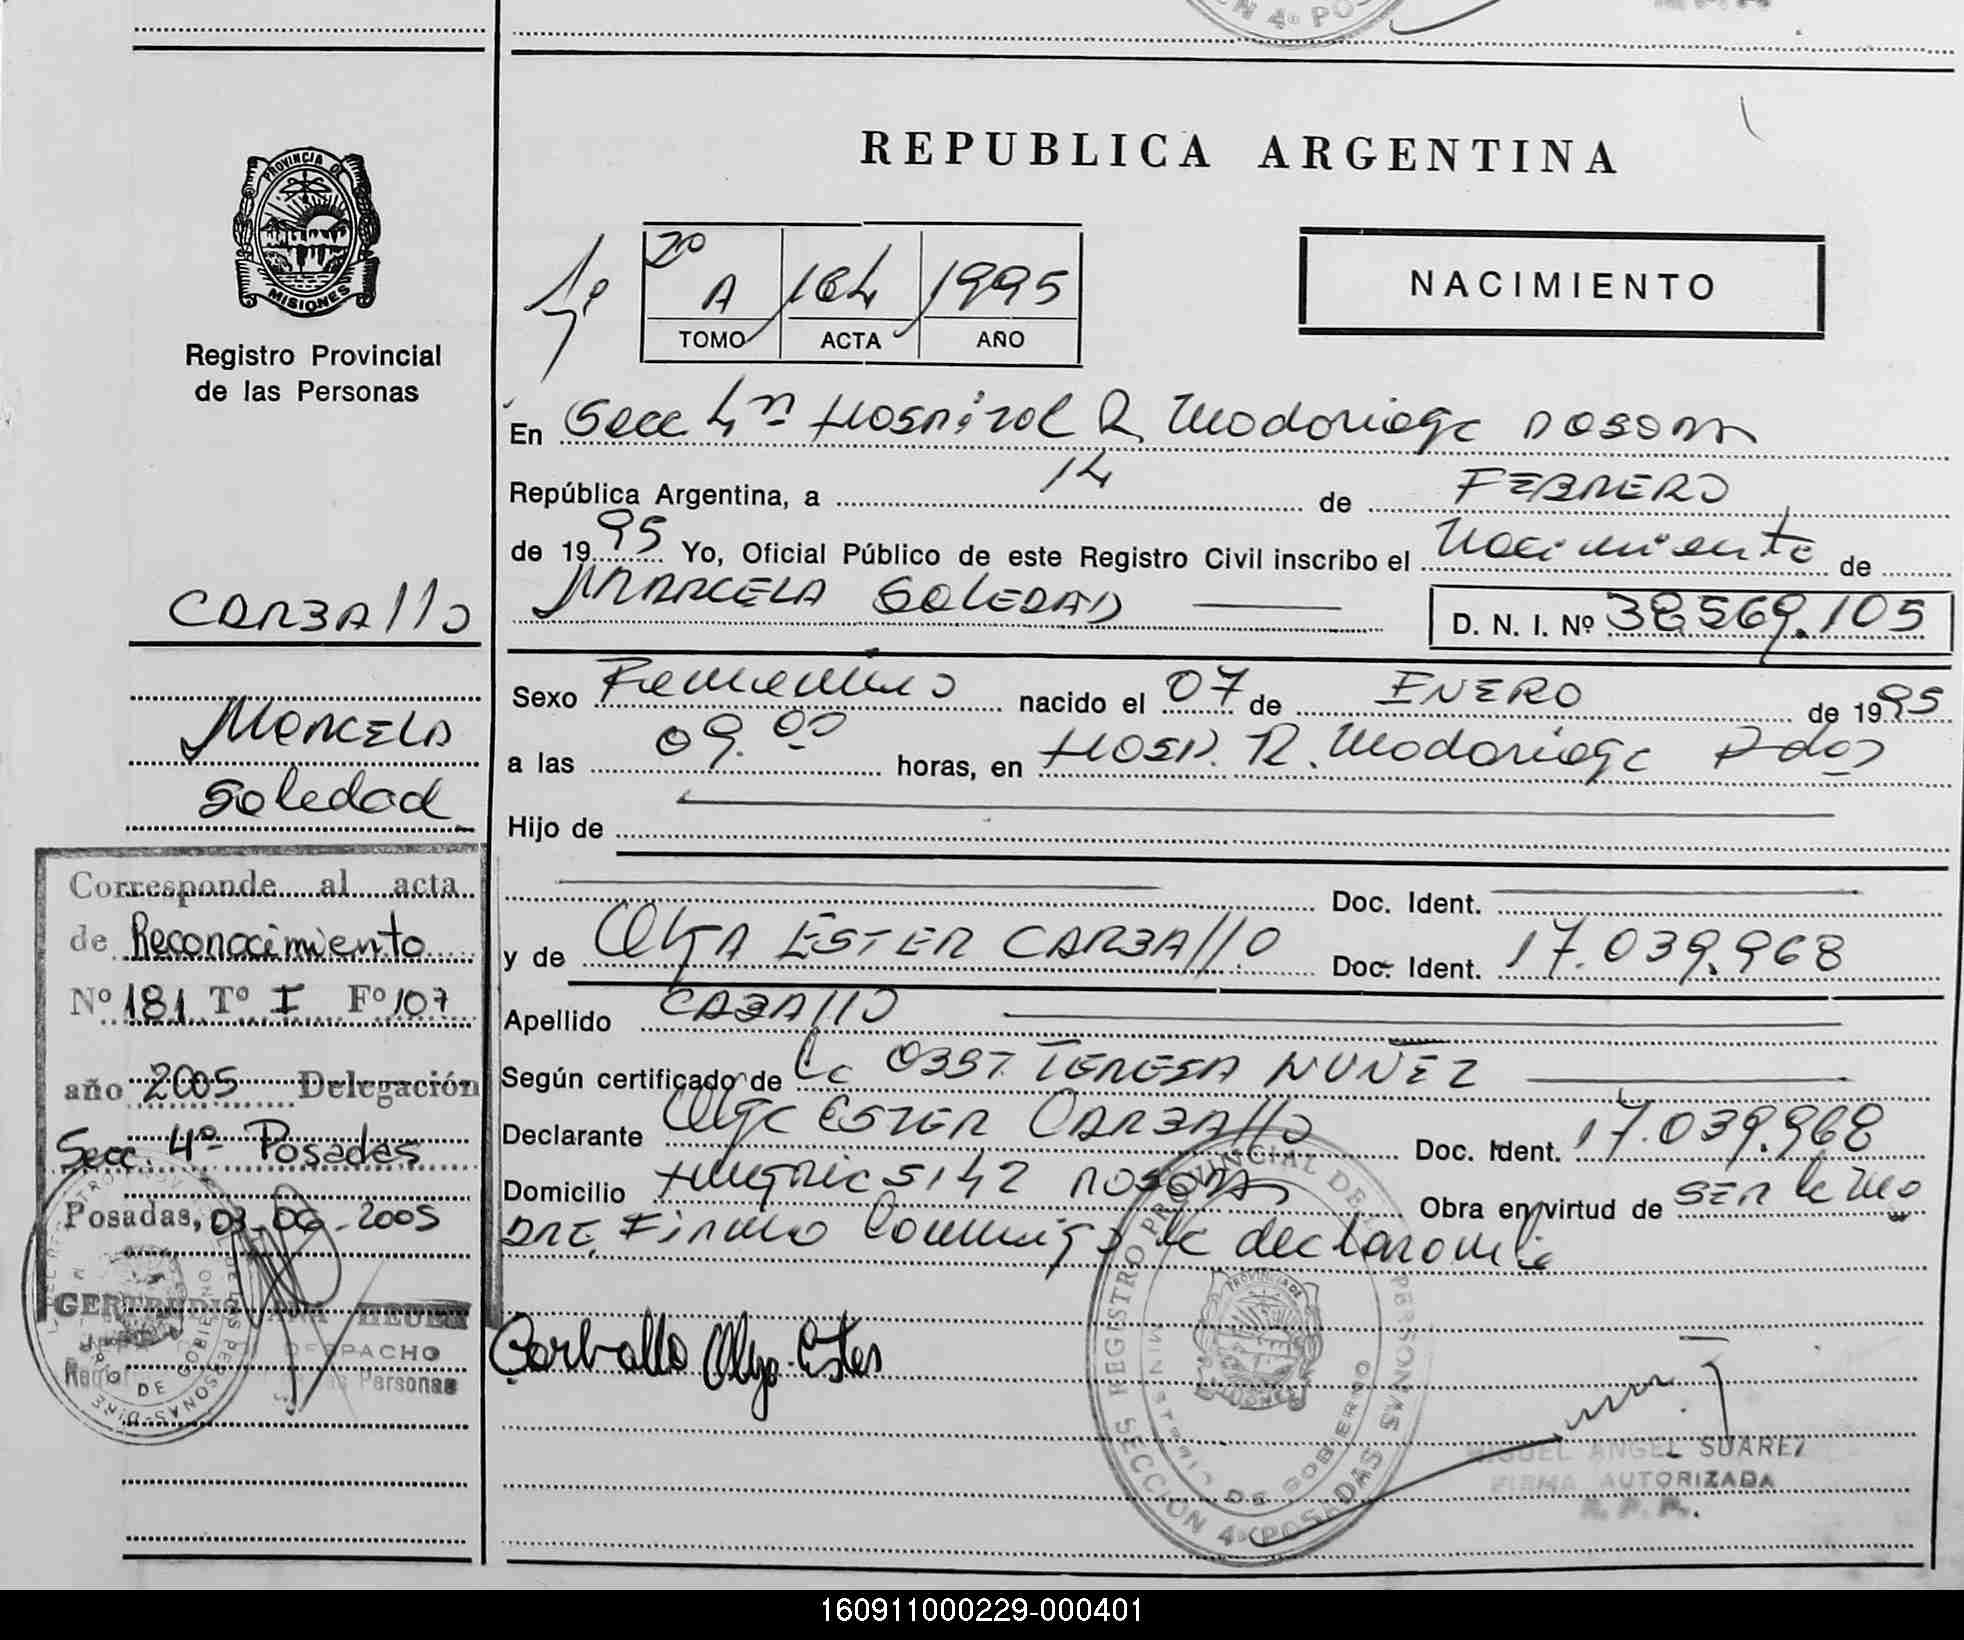 ON 4º POS
REPUBLICA ARGENTINA
PROVINCIA DE
MISIONES
Registro Provincial
de las Personas
1º
2º
A 104 1995
TOMO ACTA AÑO
NACIMIENTO
En Secc 4ª Hospital R Madariaga Posadas
República Argentina, a 14 de FEBRERO
de 1995 Yo, Oficial Público de este Registro Civil inscribo el Nacimiento de
MARCELA SOLEDAD D. N. I. Nº 38.569.105
CARBALLO
Marcela
Soledad
Sexo Femenino nacido el 07 de ENERO de 1995
a las 09.00 horas, en Hosp. R. Madariaga Pdas
Hijo de
Doc. Ident.
y de OLGA ESTER CARBALLO Doc. Ident. 17.039.968
Apellido CABALLO
Según certificado de la OBST. TERESA NUÑEZ
Declarante Olga ESTER CARBALLO Doc. Ident. 17.039.968
Domicilio 5142 Posadas Obra en virtud de SER la ma
DRE. Firmo Conmigo la declarante
Carballo Olga Ester
Corresponde al acta
de Reconocimiento
Nº 181 Tº I Fº 107
año 2005 Delegación
Secc. 4º Posadas
Posadas, 03-06-2005
GERTRUDIS ANA HEUER
DESPACHO
Personas
REGISTRO PROVINCIAL DE LAS PERSONAS
SECCION 4º POSADAS
MINISTERIO DE GOBIERNO
MIGUEL ANGEL SUAREZ
FIRMA AUTORIZADA
R. P. P.
160911000229-000401